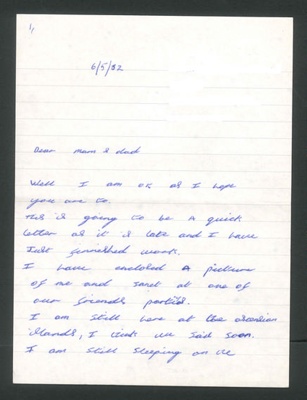 1,
6/5/82
Dear mam & dad
Well I am ok as I hope
you are to.
this is going to be a quick
letter as it is late and I have
Just finnished work.
I have enclosed a picture
of me and Janet at one of
our friends parties.
I am still here at the ascension
islands, I think we said soon.
I am still sleeping on the